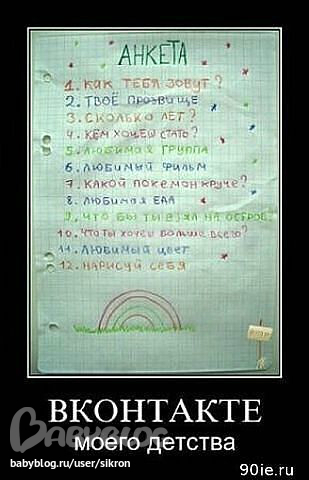 АНКЕТА
1. КАК ТЕБЯ ЗОВУТ?
2. ТВОЁ ПРОЗВИЩЕ
3. СКОЛЬКО ЛЕТ?
4. КЕМ ХОЧЕШ СТАТЬ?
5. ЛЮБИМАЯ ГРУППА
6. ЛЮБИМЫЙ ФИЛЬМ
7. КАКОЙ ПОКЕМОН КРУЧЕ?
8. ЛЮБИМАЯ ЕДА
9. ЧТО БЫ ТЫ ВЗЯЛ НА ОСТРОВ?
10. ЧТО ТЫ ХОЧЕШ БОЛЬШЕ ВСЕГО?
11. ЛЮБИМЫЙ ЦВЕТ
12. НАРИСУЙ СЕБЯ
ВКОНТАКТЕ
BABYBLOG
моего детства
babyblog.ru/user/sikron
90ie.ru